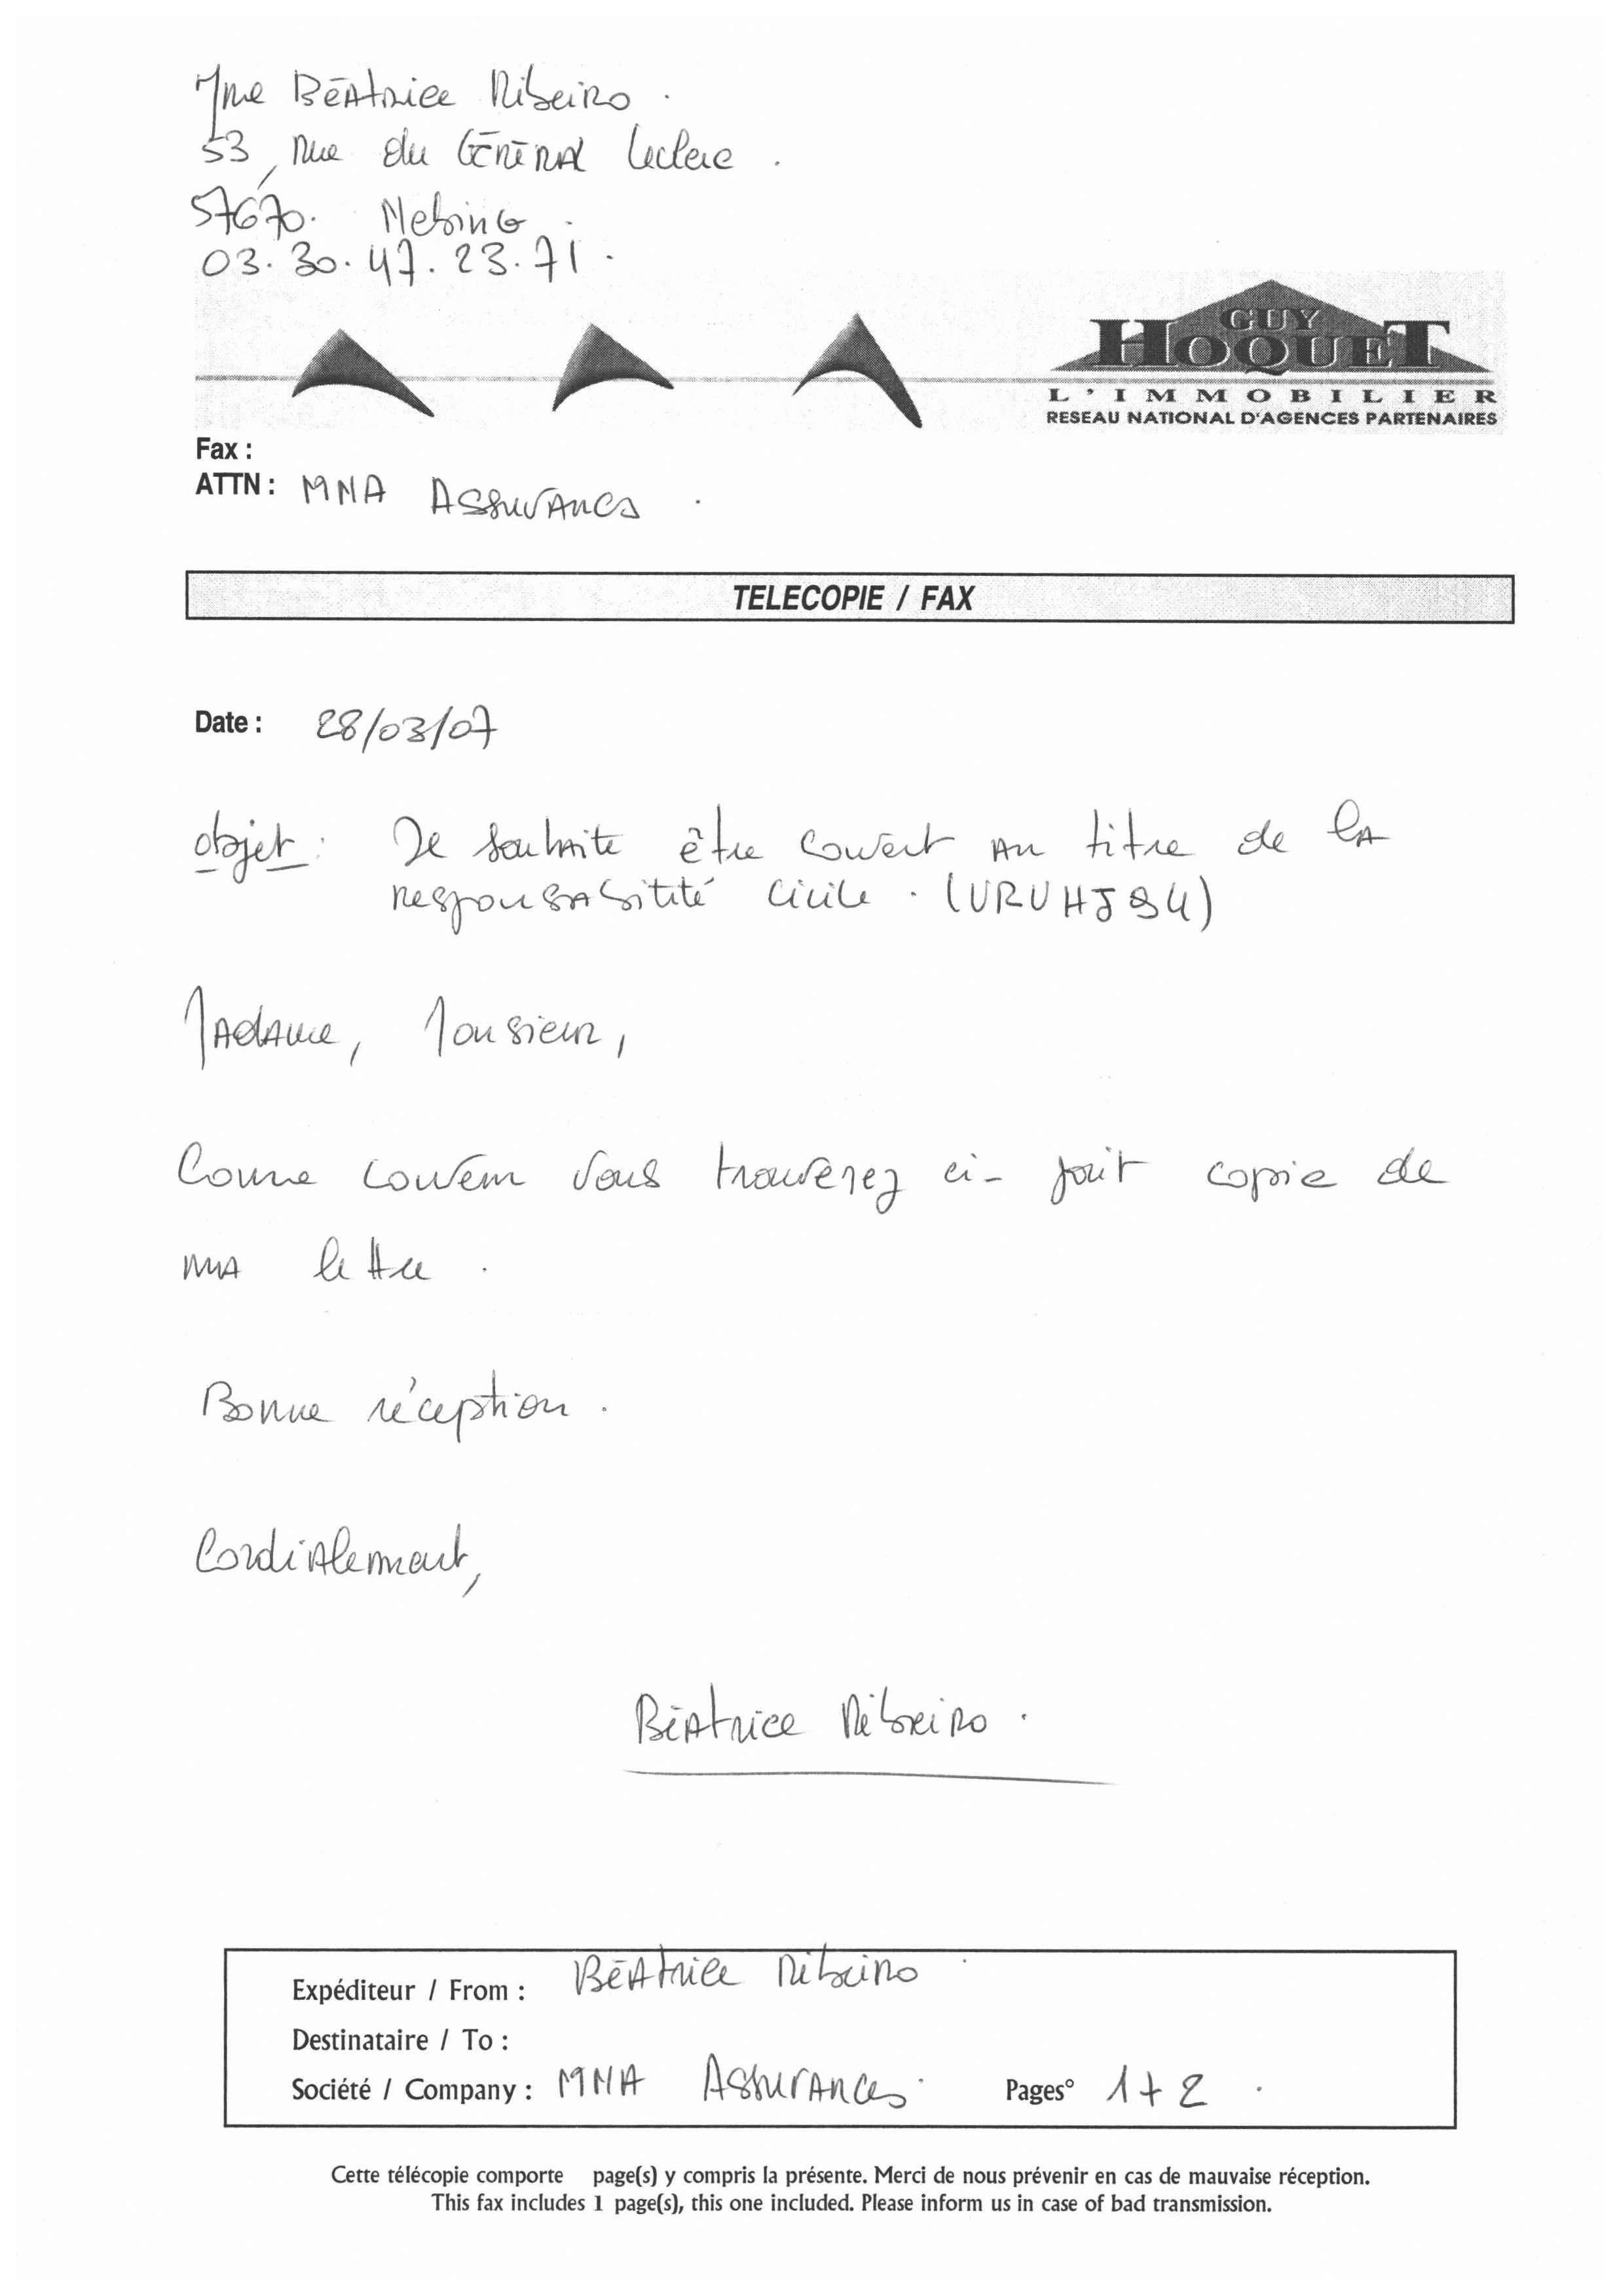 Mme Béatrice Ribeiro.
53, rue du Général Leclerc.
57670. Nebing.
03.30.47.23.71.
GUY
HOQUET
L'IMMOBILIER
RESEAU NATIONAL D'AGENCES PARTENAIRES
Fax :
ATTN : MNA Assurances.
TELECOPIE / FAX
Date : 28/03/07
objet : Je souhaite être couvert au titre de la
responsabilité civile. (URUHJ94)
Madame, Monsieur,
Comme convenu vous trouverez ci-joint copie de
ma lettre.
Bonne réception.
Cordialement,
Béatrice Ribeiro.
Expéditeur / From : Béatrice Ribeiro.
Destinataire / To :
Société / Company : MNA Assurances. Pages° 1+2.
Cette télécopie comporte page(s) y compris la présente. Merci de nous prévenir en cas de mauvaise réception.
This fax includes 1 page(s), this one included. Please inform us in case of bad transmission.